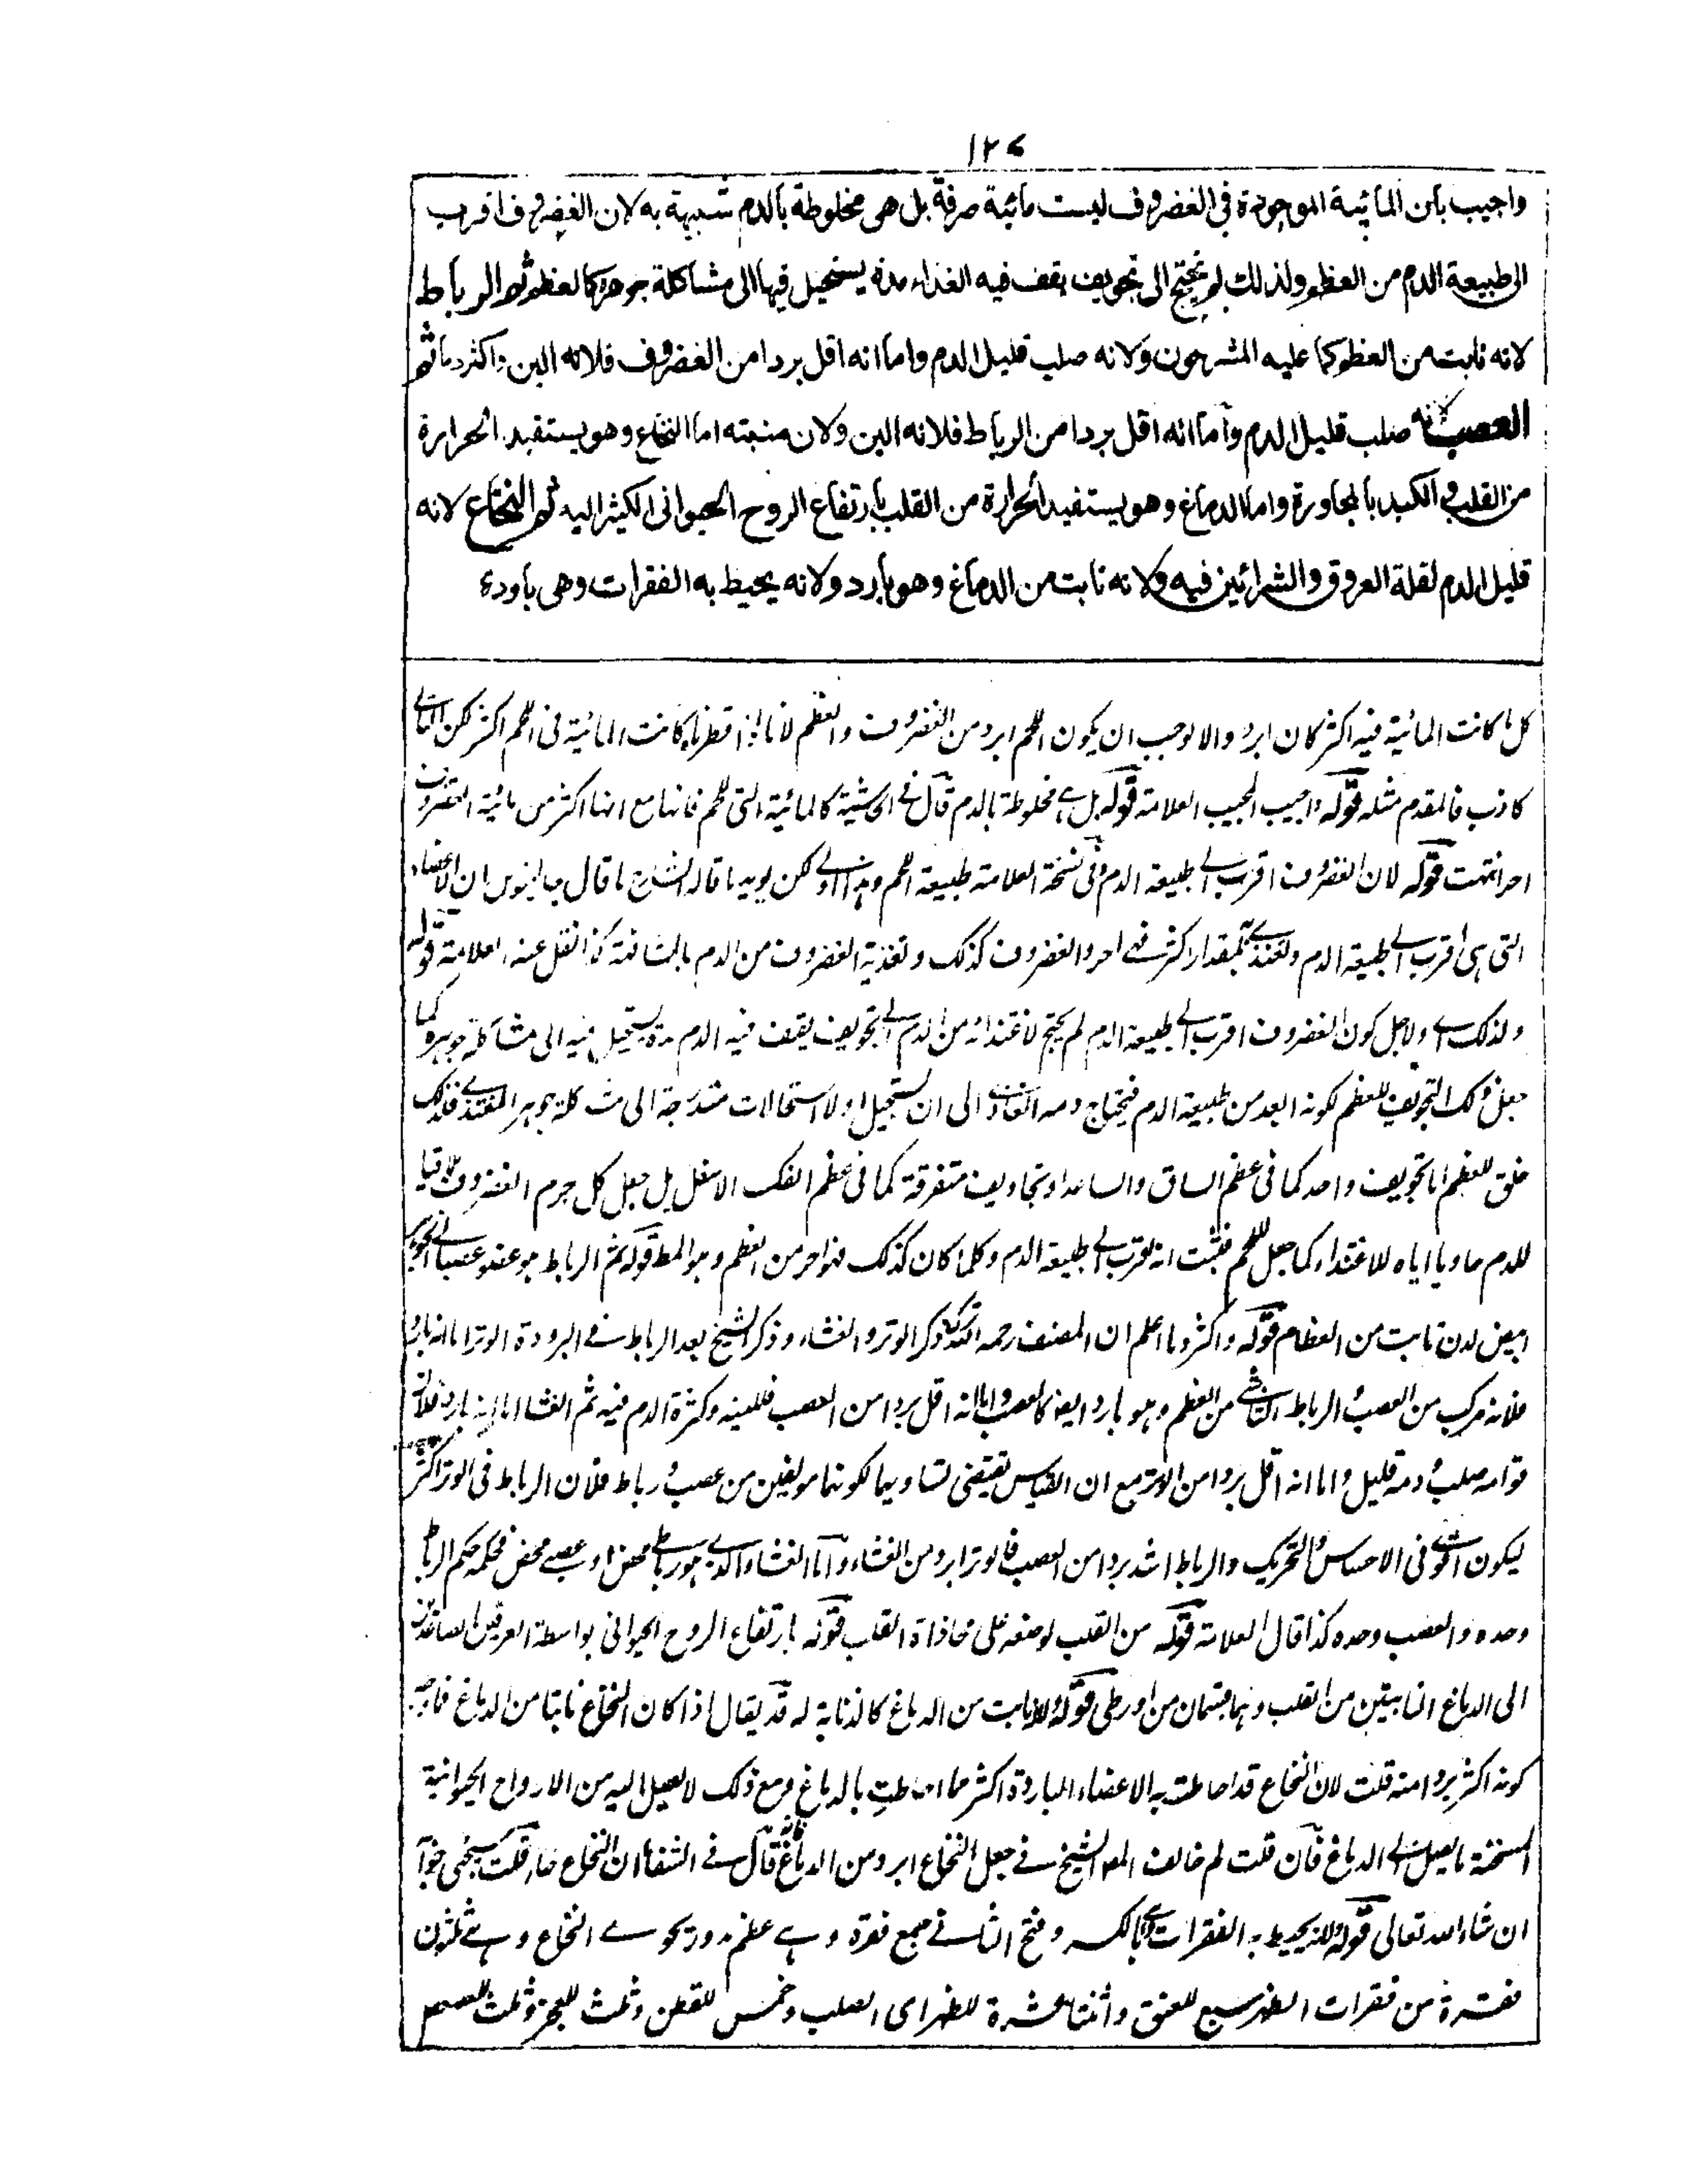 ١٢٧
واجيب بان المائية الموجودة فى الغضروف ليست مائية صرفة بل هى مخلوطة بالدم شبيهة به لان الغضروف اقرب
الى طبيعة الدم من العظم ولذلك لم يحتج الى تجويف يقف فيه الغذاء مدة يستحيل فيها الى مشاكلة جوهره كالعظم ثم الرباط
لانه نابت من العظم كما عليه المشرحون ولانه صلب قليل الدم واما انه اقل بردا من الغضروف فلانه الين واكثر دما ثم
العصب لانه صلب قليل الدم واما انه اقل بردا من الرباط فلانه الين ولان منبته اما النخاع وهو يستفيد الحرارة
من القلب و الكبد بالمجاورة واما الدماغ وهو يستفيد الحرارة من القلب بارتفاع الروح الحيوانى الكثير اليه ثم النخاع لانه
قليل الدم لقلة العروق والشرائين فيه ولانه نابت من الدماغ وهو بارد ولانه يحيط به الفقرات وهى باردة
كل ما كانت المائية فيه اكثر كان ابرد والا لوجب ان يكون اللحم ابرد من الغضروف والعظم لانا اذا قطرنا كانت المائية فى اللحم اكثر لكن التالى
كاذب فالمقدم مثله قوله واجيب المجيب العلامة قوله بل هى مخلوطة بالدم قال فى الحاشية كالمائية التى للحم فانها مع انها اكثر من مائية الغضروف
احر انتهت قوله لان الغضروف اقرب الى طبيعة الدم وفى نسخة العلامة طبيعة اللحم وهذا اولى لكن يويد ما قاله الشارح ما قال جالينوس ان الاعضاء
التى هى اقرب الى طبيعة الدم وتغتذى بمقدار اكثر فهى احر والغضروف كذلك وتغذية الغضروف من الدم كذا نقل عنه العلامة قوله
ولذلك اى ولاجل كون الغضروف اقرب الى طبيعة الدم لم يحتج لاغتذائه من الدم الى تجويف يقف فيه الدم مدة يستحيل فيه الى مشاكلة جوهره كما
جعل ذلك التجويف للعظم لكونه ابعد من طبيعة الدم فيحتاج دمه الغاذى الى ان يستحيل اولا استحالات متدرجة الى مشاكلة جوهر المغتذى فلذلك
خلق للعظم اما تجويف واحد كما فى عظم الساق والساعد او تجاويف متفرقة كما فى عظم الفك الاسفل بل جعل كل جرم الغضروف ملاقيا
للدم حاويا اياه للاغتذاء كما جعل اللحم فثبت انه اقرب الى طبيعة الدم وكلما كان كذلك فهو احر من العظم وهو المط قوله ثم الرباط هو عضو عصبانى الجوهر
ابيض لدن نابت من العظام قوله واكثر دما اعلم ان المصنف رحمه الله ترك ذكر الوتر والغشاء وذكر الشيخ بعد الرباط فى البرودة الوتر اما انه بارد
فلانه مركب من العصب والرباط الناشى من العظم وهو بارد ايضا كالعصب واما انه اقل بردا من العصب فللينه وكثرة الدم فيه ثم الغشاء اما انه بارد فلان
قوامه صلب ودمه قليل واما انه اقل بردا من الوتر مع ان القياس يقتضى تساويهما لكونهما مولفين من عصب ورباط فلان الرباط فى الوتر اكثر
ليكون اقوى فى الاحساس والتحريك والرباط اشد بردا من العصب فالوتر ابرد من الغشاء واما الغشاء الذى هو رباطى محض او عصبى محض فحكمه حكم الرباط
وحده والعصب وحده كذا قال العلامة قوله من القلب لوضعه على محاذاة القلب قوله بارتفاع الروح الحيوانى بواسطة العرقين الصاعدين
الى الدماغ النابتين من القلب وهما قسمان من اورطى قوله لانه نابت من الدماغ كالذنابة له قد يقال اذا كان النخاع نابتا من الدماغ فما وجه
كونه اكثر بردا منه قلت لان النخاع قد احاطت به الاعضاء الباردة اكثر مما احاطت بالدماغ ومع ذلك لا يصل اليه من الارواح الحيوانية
المسخنة ما يصل الى الدماغ فان قلت لم خالف المص الشيخ فى جعل النخاع ابرد من الدماغ فانه قال فى الشفا ان النخاع حار قلت سيجئ جوابه
ان شاء الله تعالى قوله لانه يحيط به الفقرات هى بالكسر وفتح الثانى جمع فقرة وهى عظم مدور يحوى النخاع وهى ثلثون
فقرة من فقرات الظهر سبع للعنق واثنتا عشرة للظهر اى الصلب وخمس للقطن وثلث للعجز وثلث للعصعص